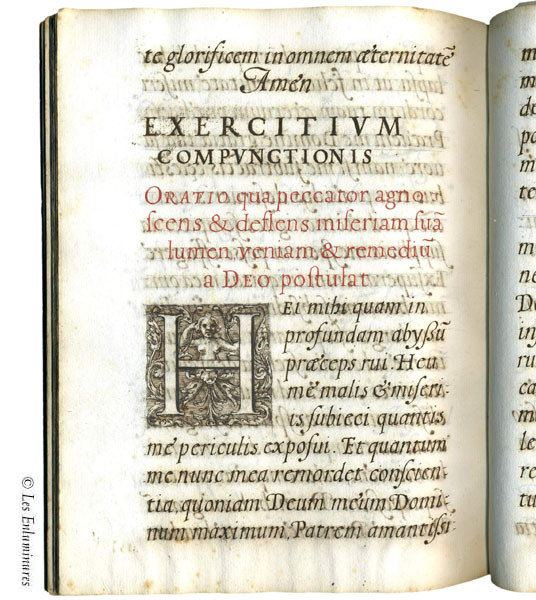 te glorificem in omnem æternitatē
Amen
EXERCITIVM
COMPVNCTIONIS
ORATIO qua peccator agno
scens & deflens miseriam suā
lumen, veniam, & remediū
a DEO postulat
HEi mihi quam in
profundam abyssū
præceps rui. Heu
me malis & miseri⸗
is subieci quantis
me periculis exposui. Et quantum
me nunc mea remordet conscien⸗
tia, quoniam Deum meum Domi⸗
num maximum, Patrem amantissi
© Les Enluminures